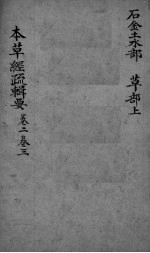 石金土水部 草部上
本草經疏輯要 卷二卷三